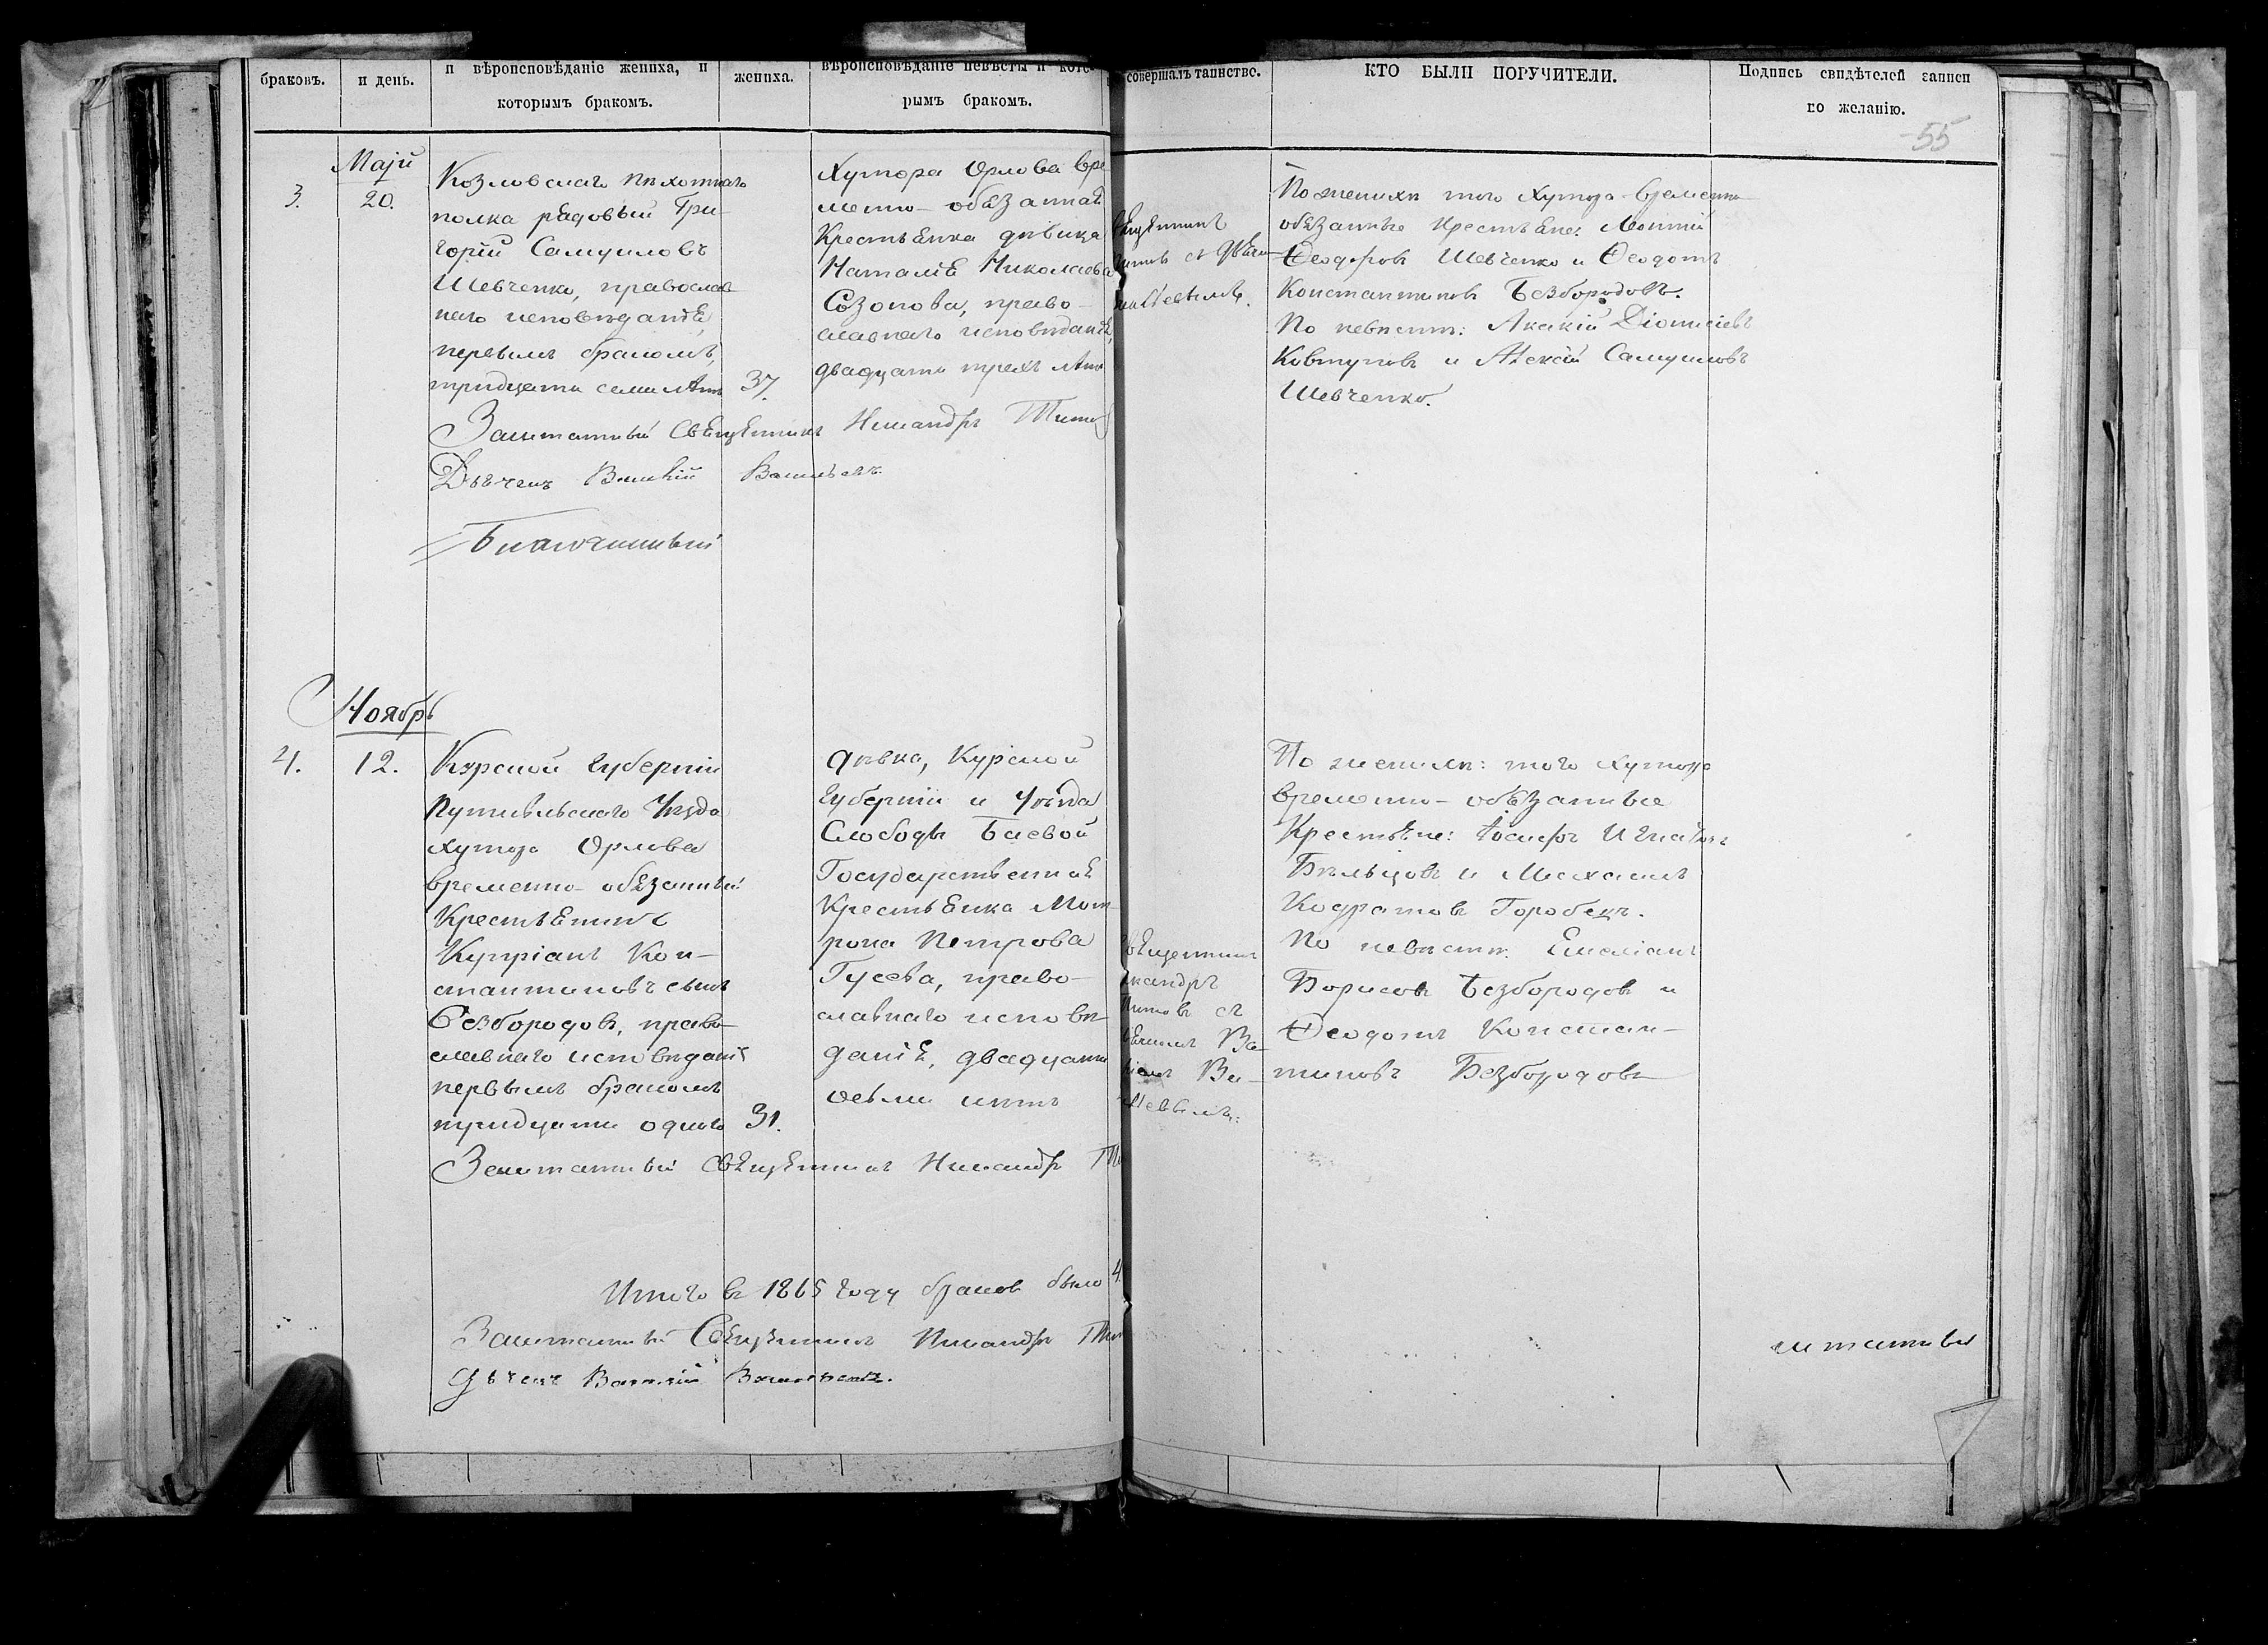 браковъ.
и день.
и вѣроисповѣданіе жениха, и
которымъ бракомъ.
жениха.
вѣроисповѣданіе невѣсты и кото-
рымъ бракомъ.
совершалъ таинство.
КТО БЫЛИ ПОРУЧИТЕЛИ.
Подпись свидѣтелей записи
по желанію.
55
3.
Маій
20.
Козловскаго пѣхотнаго
полка рядовый Гри-
горій Самуиловъ
Шевченко, православ-
наго исповѣданія,
первымъ бракомъ,
тридцати семи лѣтъ
37.
Хутора Орлова вре
менно-обязанная
Крестьянка дѣвица
Наталія Николаева
Созонова, право-
славнаго исповѣданія,
двадцати трехъ лѣтъ
вященникъ
Титовъ съ
По женихѣ того хутора временно-
обязанные крестьяне: Леонтій
Ѳеодоровъ Шевченко и Ѳеодотъ
Константиновъ Безбородовъ.
По невѣстѣ: Акакій Діонисіевъ
Ковтуновъ и Алексій Самуиловъ
Шевченко.
Заштатный Священникъ Никандръ Титов
Дьячекъ Василій Васильевъ
Благочинный
Ноябрь
4.
12.
Курской Губерніи
Путивльскаго Уѣзда
хутора Орлова
временно-обязанный
Крестьянинъ
Купріанъ Кон-
стантиновъ сынъ
Безбородовъ, право-
славнаго исповѣданія
первымъ бракомъ
тридцати одного
31.
Дѣвка, Курской
Губерніи и Уѣзда
Слободы Баевой
Государственная
Крестьянка Мот-
рона Петрова
Гусева, право-
славнаго исповѣ-
данія, двадцати
осьми лѣтъ
вященникъ
икандръ
Титовъ съ
ьячкомъ Ва-
Ва-
По женихѣ: того хутора
временно-обязанные
Крестьяне: Іосифъ Игнатовъ
Бѣльцовъ и Михаилъ
Кодратовъ Горобецъ.
По невѣстѣ: Емеліанъ
Борисовъ Безбородовъ и
Ѳеодотъ Констан-
тиновъ Безбородовъ
Заштатный Священникъ Никандръ Ти
Итого въ 1865 году браковъ было 4.
Заштатный Священникъ Никандръ Тит
дьячекъ Василій Васильевъ.
штатный